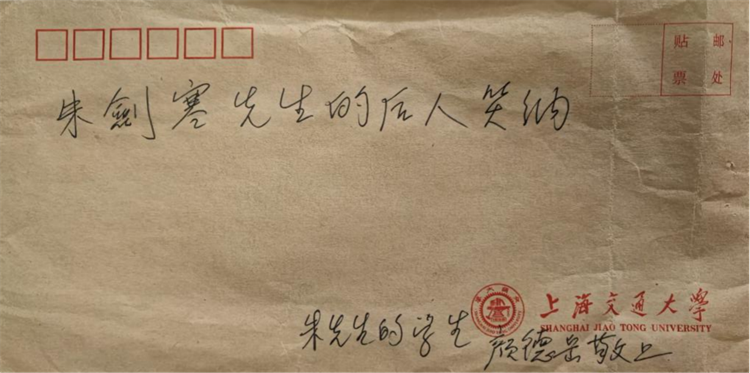 贴 邮
票 处
朱劍寒先生的后人笑纳
上海交通大學
SHANGHAI JIAO TONG UNIVERSITY
朱先生的学生 颜德岳敬上